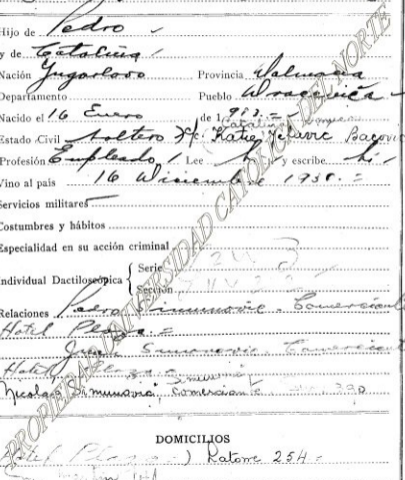 Hijo de Pedro
y de Catalina
Nación Yugoslavo Provincia Dalmacia
Departamento Pueblo
Nacido el 16 Enero de 19
Estado Civil soltero Katie Jelavic Bacovic
Profesión Empleado Lee si y escribe si
Vino al pais 16 Diciembre 1938
Servicios militares
Costumbres y hábitos
Especialidad en su acción criminal
Individual Dactiloscópica { Serie
Sección
Relaciones Pedro Simunovic. Comerciante
Hotel Plaza
Juan Simunovic, Comerciante
Hotel Plaza
Nicolás Simunovic, comerciante 390
DOMICILIOS
Hotel Plaza) Latorre 254
PROPIEDAD UNIVERSIDAD CATOLICA DEL NORTE